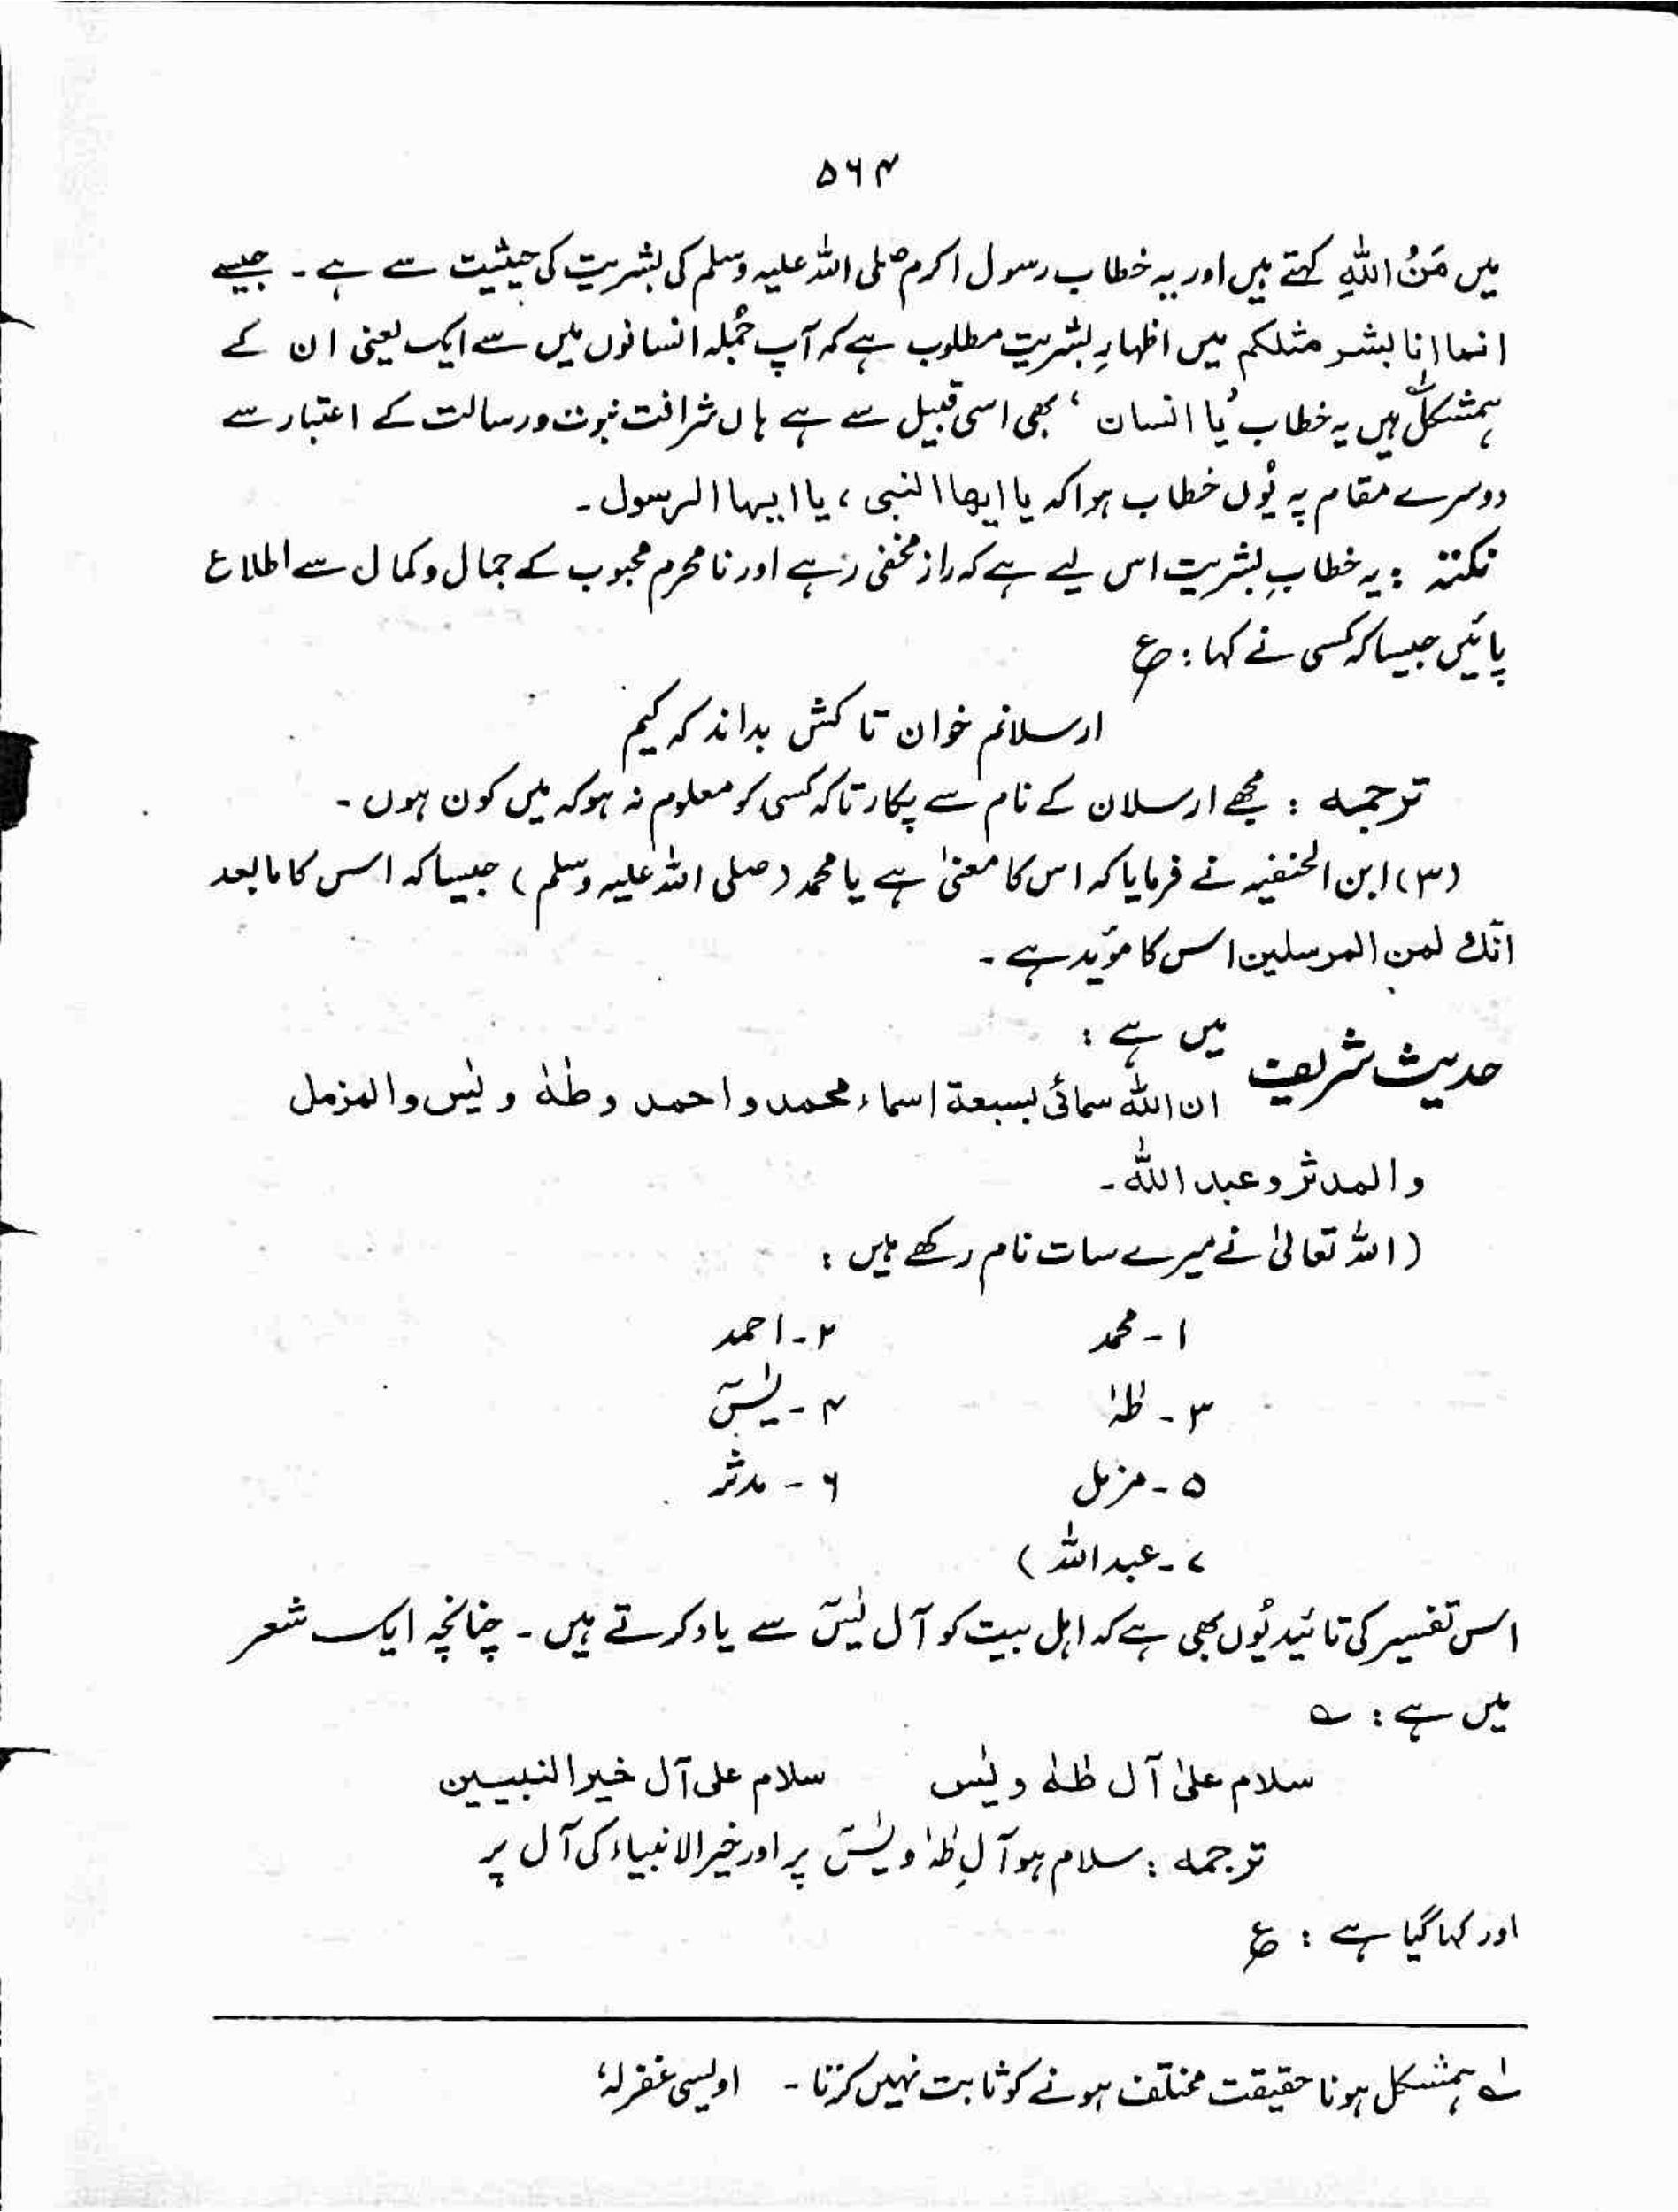 ۵۶۴
میں مَنُ اللّٰهِ کہتے ہیں اور یہ خطاب رسول اکرم صلی اللہ علیہ وسلم کی بشریت کی حیثیت سے ہے ۔ جیسے
انما انا بشر مثلکم میں اظہارِ بشریت مطلوب ہے کہ آپ جُملہ انسانوں میں سے ایک یعنی ان کے
ہمشکل ہیں یہ خطاب ’یا انسان‘ بھی اسی قبیل سے ہے ہاں شرافت نبوت و رسالت کے اعتبار سے
دوسرے مقام پہ یُوں خطاب ہوا کہ یا ایھا النبی ، یا ایہا الرسول ۔
نکتہ : یہ خطابِ بشریت اس لیے ہے کہ راز مخفی رہے اور نامحرم محبوب کے جمال و کمال سے اطلاع
پائیں جیسا کہ کسی نے کہا : ع
ارسلانم خوان تا کش بداند کہ کیم
ترجمہ : مجھے ارسلان کے نام سے پکار تاکہ کسی کو معلوم نہ ہو کہ میں کون ہوں ۔
(۳) ابن الحنفیہ نے فرمایا کہ اس کا معنیٰ ہے یا محمد (صلی اللہ علیہ وسلم) جیسا کہ اس کا مابعد
انّک لمن المرسلین اس کا مؤید ہے ۔
حدیث شریف میں ہے :
ان اللّٰه سمائی بسبعة اسماء محمد و احمد و طٰہٰ و یٰس و المزمل
و المدثر و عبد اللّٰه ۔
(اللہ تعالیٰ نے میرے سات نام رکھے ہیں :
۱ ۔ محمد ۲ ۔ احمد
۳ ۔ طٰہٰ ۴ ۔ یٰسٓ
۵ ۔ مزمل ۶ ۔ مدثر
۷ ۔ عبداللہ )
اس تفسیر کی تائید یُوں بھی ہے کہ اہل بیت کو آل یٰسٓ سے یاد کرتے ہیں ۔ چنانچہ ایک شعر
میں ہے : ؎
سلام علیٰ آل طٰہٰ و یٰس سلام علی آل خیر النبیین
ترجمہ : سلام ہو آلِ طٰہٰ و یٰسٓ پر اور خیر الانبیاء کی آل پر
اور کہا گیا ہے : ع
لہ ہمشکل ہونا حقیقت مختلف ہونے کو ثابت نہیں کرتا ۔ اویسی غفرلہٗ